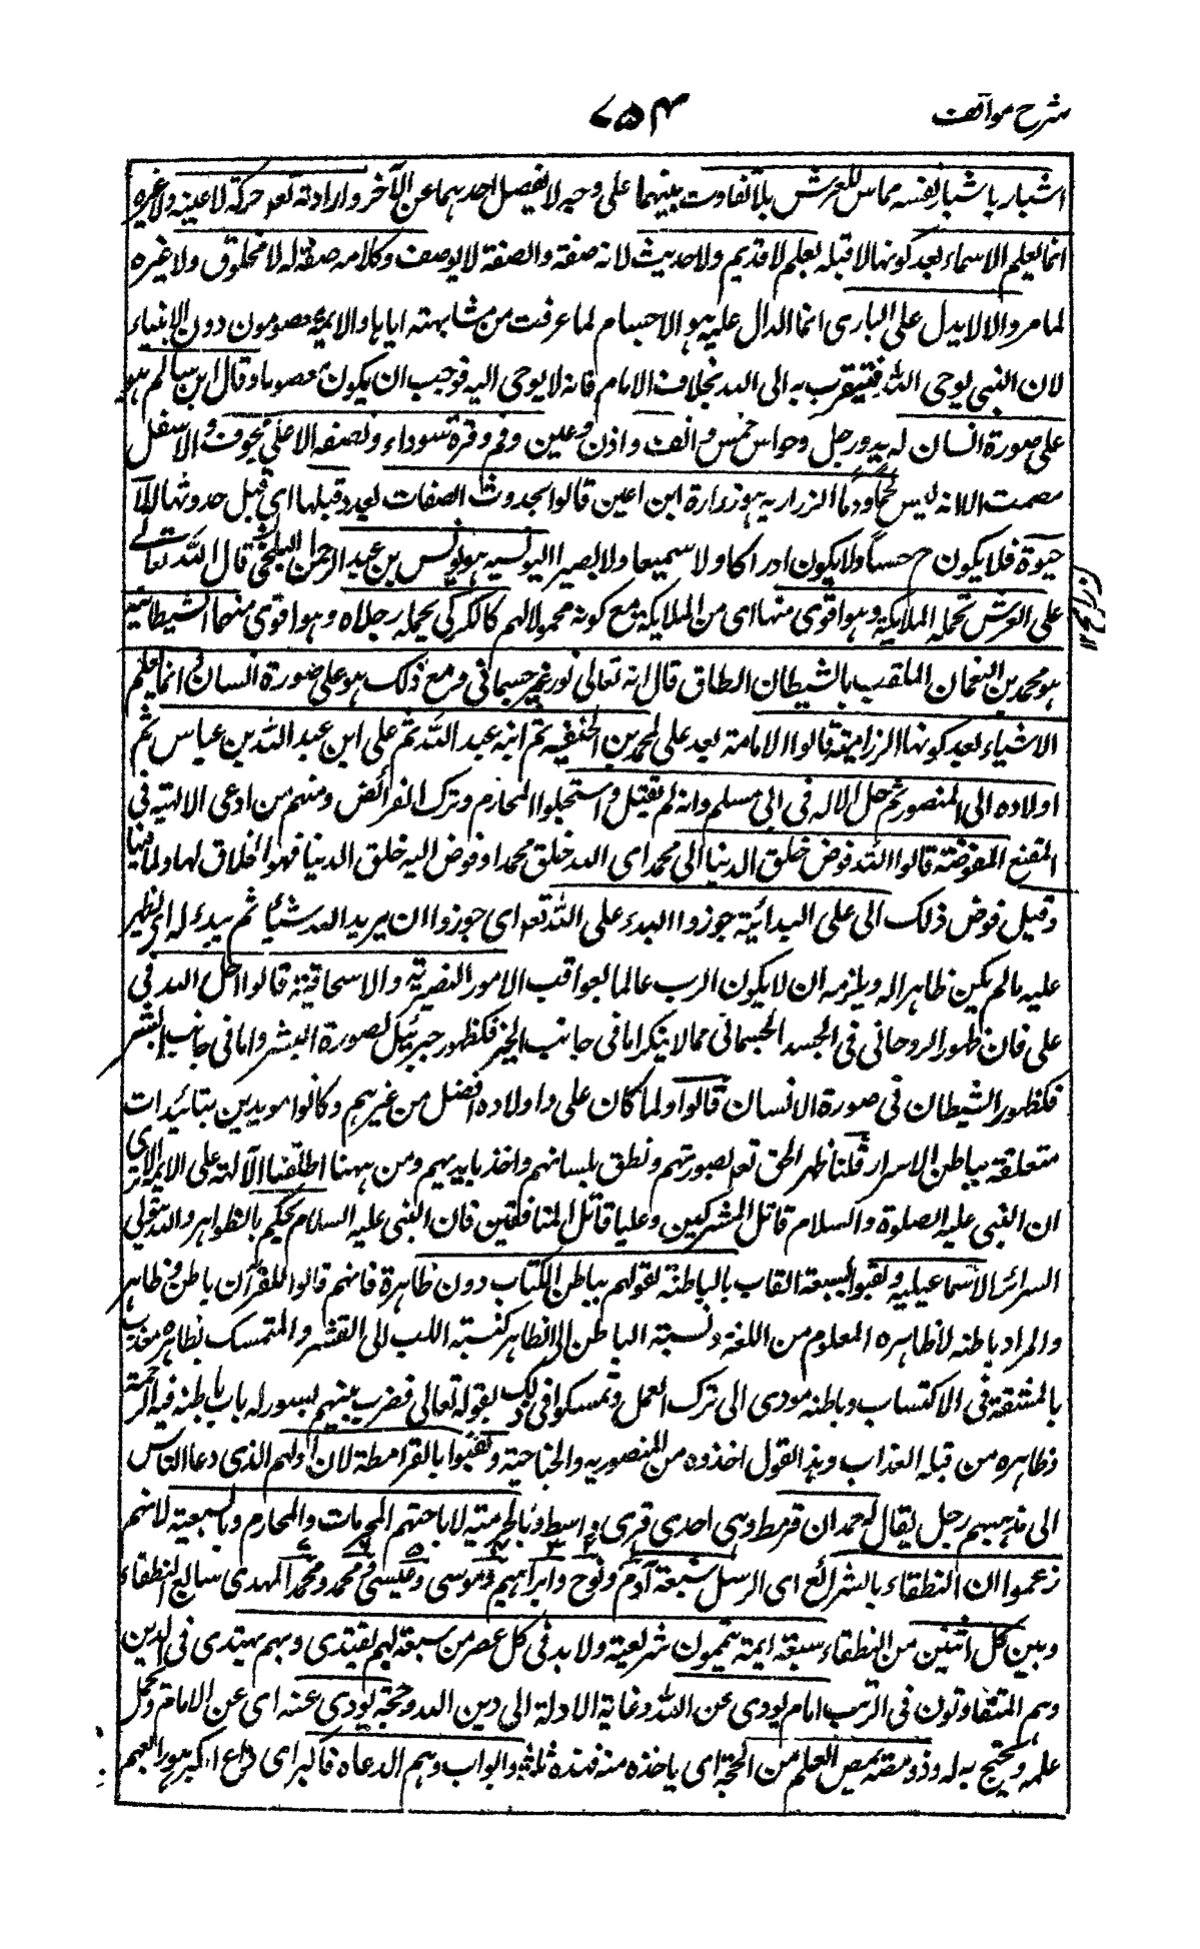 شرح مواقف
۷۵۴
اشبار باشبار نفسه مماس للعرش بلا تفاوت بينهما على وجه لا يفصل احدهما عن الآخر وارادته تعـ حركة لا عينه ولا غيره
انما يعلم الاسماء بعد كونها لا قبله بعلم لا قديم ولا حديث لانه صفة والصفة لا يوصف وكلامه صفة له لا مخلوق ولا غيره
لما مر والا لا يدل على البارى انما الدال عليه هو الاجسام لما عرفت من مشابهته اياها والايمة معصومون دون الانبياء
لان النبى يوحى اليه فيتقرب به الى الله بخلاف الامام فانه لا يوحى اليه فوجب ان يكون معصوما وقال ابن سالم هو
على صورة انسان له يد ورجل وحواس خمس وانف واذن وعين وفم وفرة سوداء ونصفه الاعلى مجوف والاسفل
مصمت الا انه ليس لحما ودما الزراريه هو زرارة ابن اعين قالوا بحدوث الصفات لعـ وقبلها اى قبل حدوثها له لا
حيوة فلا يكون ح حسا ولا يكون ادراكا ولا سميعا ولا بصيرا اليونسيه هو يونس بن عبد الرحمن البلخى قال الله تعالى
على العرش تحمله الملايكة وهو اقوى منها اى من الملايكة مع كونه محمولا لهم كالكركى يحمله رجلاه وهو اقوى منهما الشيطانيه
هو محمد بن النعمان الملقب بالشيطان الطاق قال انه تعالى نور غير جسمانى ومع ذلك هو على صورة انسان انما يعلم
الاشياء بعد كونها الرزامية قالوا الامامة بعد على لمحمد بن الحنفيه ثم ابنه عبد الله ثم على ابن عبد الله بن عباس ثم
اولاده الى المنصور ثم حل الاله فى ابى مسلم وانه لم يقتل واستحلوا المحارم وترك الفرائض ومنهم من ادعى الالهية فى
المقنع المفوضة قالوا الله فوض خلق الدنيا الى محمد اى الله خلق محمدا وفوض اليه خلق الدنيا فهو الخلاق لها ولما فيها
وقيل فوض ذلك الى على البدائية جوزوا البدء على الله تعـ اى جوزوا ان يريد الله شيئا ثم يبدء له اى يظهر
عليه ما لم يكن ظاهرا له ويلزمه ان لا يكون الرب عالما بعواقب الامور النصيرية والاسحاقية قالوا حل الله فى
على فان ظهور الروحانى فى الجسد الجسمانى مما لا ينكر اما فى جانب الخير فكظهور جبرئيل بصورة البشر واما فى جانب الشر
فكظهور الشيطان فى صورة الانسان قالوا ولما كان على واولاده افضل من غيرهم وكانوا مويدين بتائيدات
متعلقة بباطن الاسرار قلنا ظهر الحق تعـ بصورتهم ونطق بلسانهم واخذ بايديهم ومن ههنا اطلقنا الآلهة على الايمة الا يرى
ان النبى عليه الصلوة والسلام قاتل المشركين وعليا قاتل المنافقين فان النبى عليه السلام يحكم بالظواهر والله يتولى
السرائر الاسماعيليه ولقبوا بسبعة القاب بالباطنة لقولهم بباطن الكتاب دون ظاهره فانهم قالوا للقرآن باطن وظاهر
والمراد باطنه لا ظاهره المعلوم من اللغة ونسبة الباطن الى الظاهر كنسبة اللب الى القشر والمتمسك بظاهره معذب
بالمشقة فى الاكتساب وباطنه مودى الى ترك العمل وتمسكوا فى ذلك بقوله تعالى فضرب بينهم بسور له باب باطنه فيه الرحمة
وظاهره من قبله العذاب وهذا القول اخذوه من المنصوريه والجناحية ولقبوا بالقرامطة لان اولهم الذى دعا الناس
الى مذهبهم رجل يقال له حمدان قرمط وهى احدى قرى واسط وبالحرمية لاباحتهم المحرمات والمحارم وبالسبعية لانهم
زعموا ان النطقاء بالشرائع اى الرسل سبعة آدم ونوح وابراهيم وموسى وعيسى ومحمد ومحمد المهدى سابع النطقاء
وبين كل اثنين من النطقاء سبعة ايمة يتممون شريعته ولا بد فى كل عصر من سبعة بهم يقتدى وبهم يهتدى فى الدين
وهم المتفاوتون فى الرتب امام يودى عن الله وغاية الادلة الى دين الله وحجة يودى عنه اى عن الامام ويحمل
علمه ويحتج به له وذو مصة يمص العلم من الحجة اى ياخذه منه فهذه ثلثة وابواب وهم الدعاه فاكبر اى داع اكبر هو رابعهم